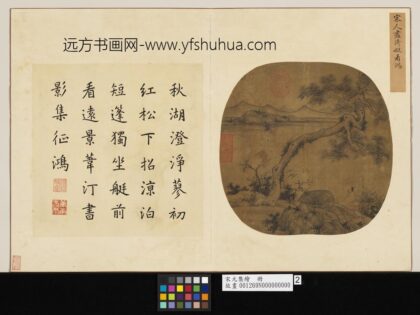 远方书画网-www.yfshuhua.com
秋湖澄淨蓼初
紅松下招涼泊
短蓬獨坐艇前
看遠景葦汀書
影集征鴻
宋元集繪 冊
故畫001289N000000000
2